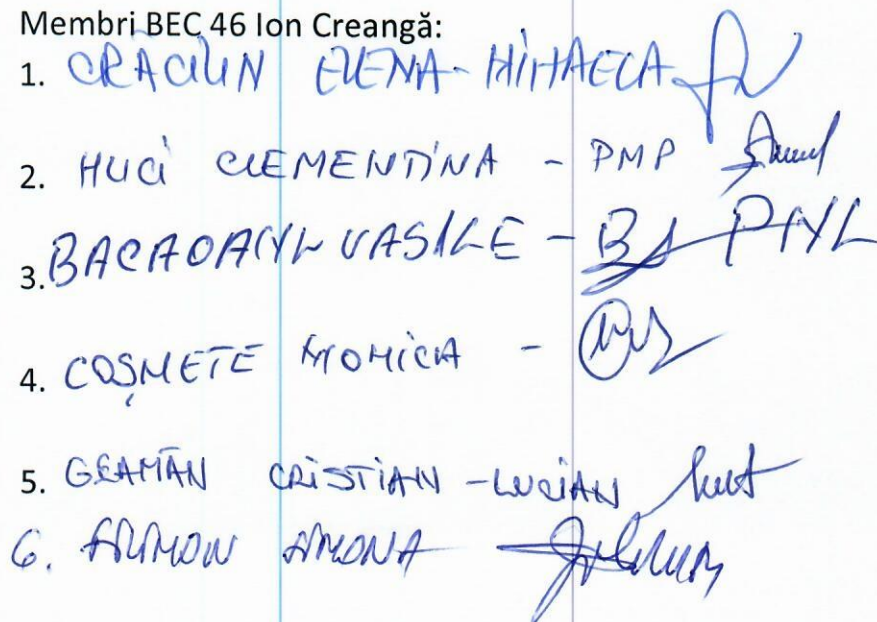 Membri BEC 46 Ion Creangă:
1. CRĂCIUN ELENA-MIHAELA
2. HUCI CLEMENTINA - PMP
3. VASILE - PNL
4. COȘMETE MONICA -
5. GEAMĂN CRISTIAN-LUCIAN
6.